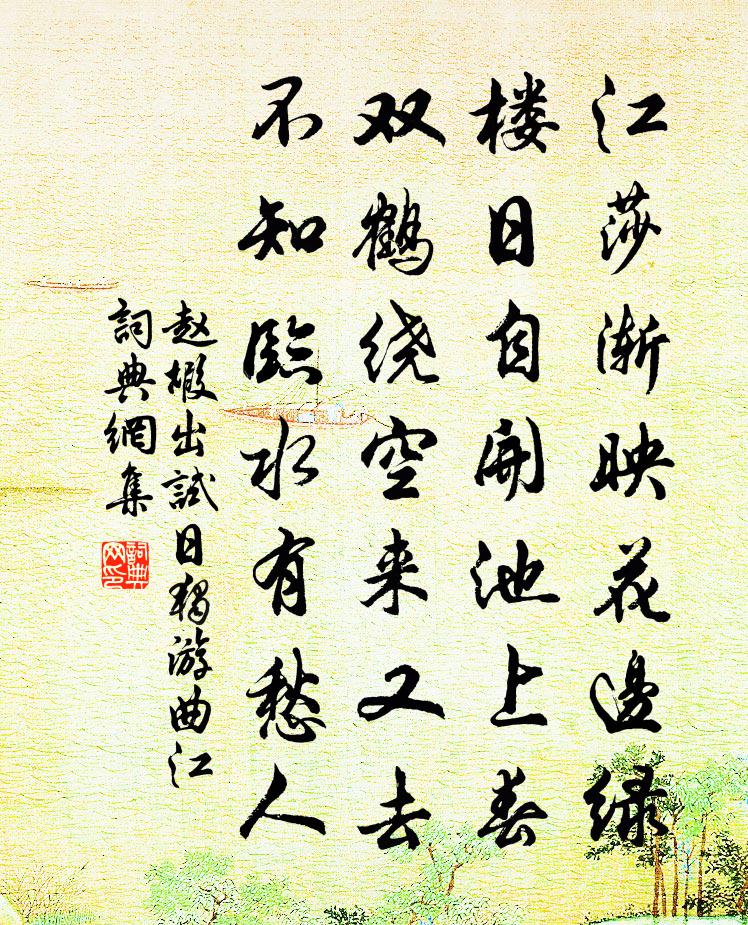 江莎渐映花邊绿
楼日自開池上春
双鹤绕空来又去
不知臨水有愁人
赵嘏出試日獨游曲江
詞典網集
詞典
网印